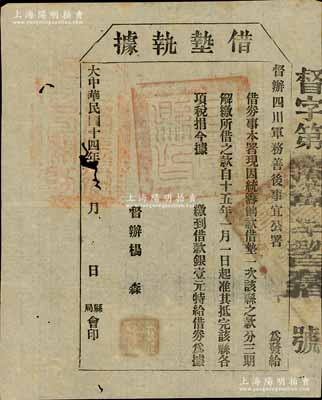 上海陽明拍賣
SHANGHAI YOUNGMING AUCTION
據執墊借
督辦四川軍務善後事宜公署 為發給
借券事本署現因統籌餉款借墊一次該縣之款分三期
解繳所借之款自十五年 月一日起准其抵完該縣各
項稅捐今據 繳到借款銀壹元特給借券為據
督辦楊森
大中華民國十四年 月 日
縣局會印
督字第 號
上海陽明拍賣
SHANGHAI YOUNGMING AUCTION